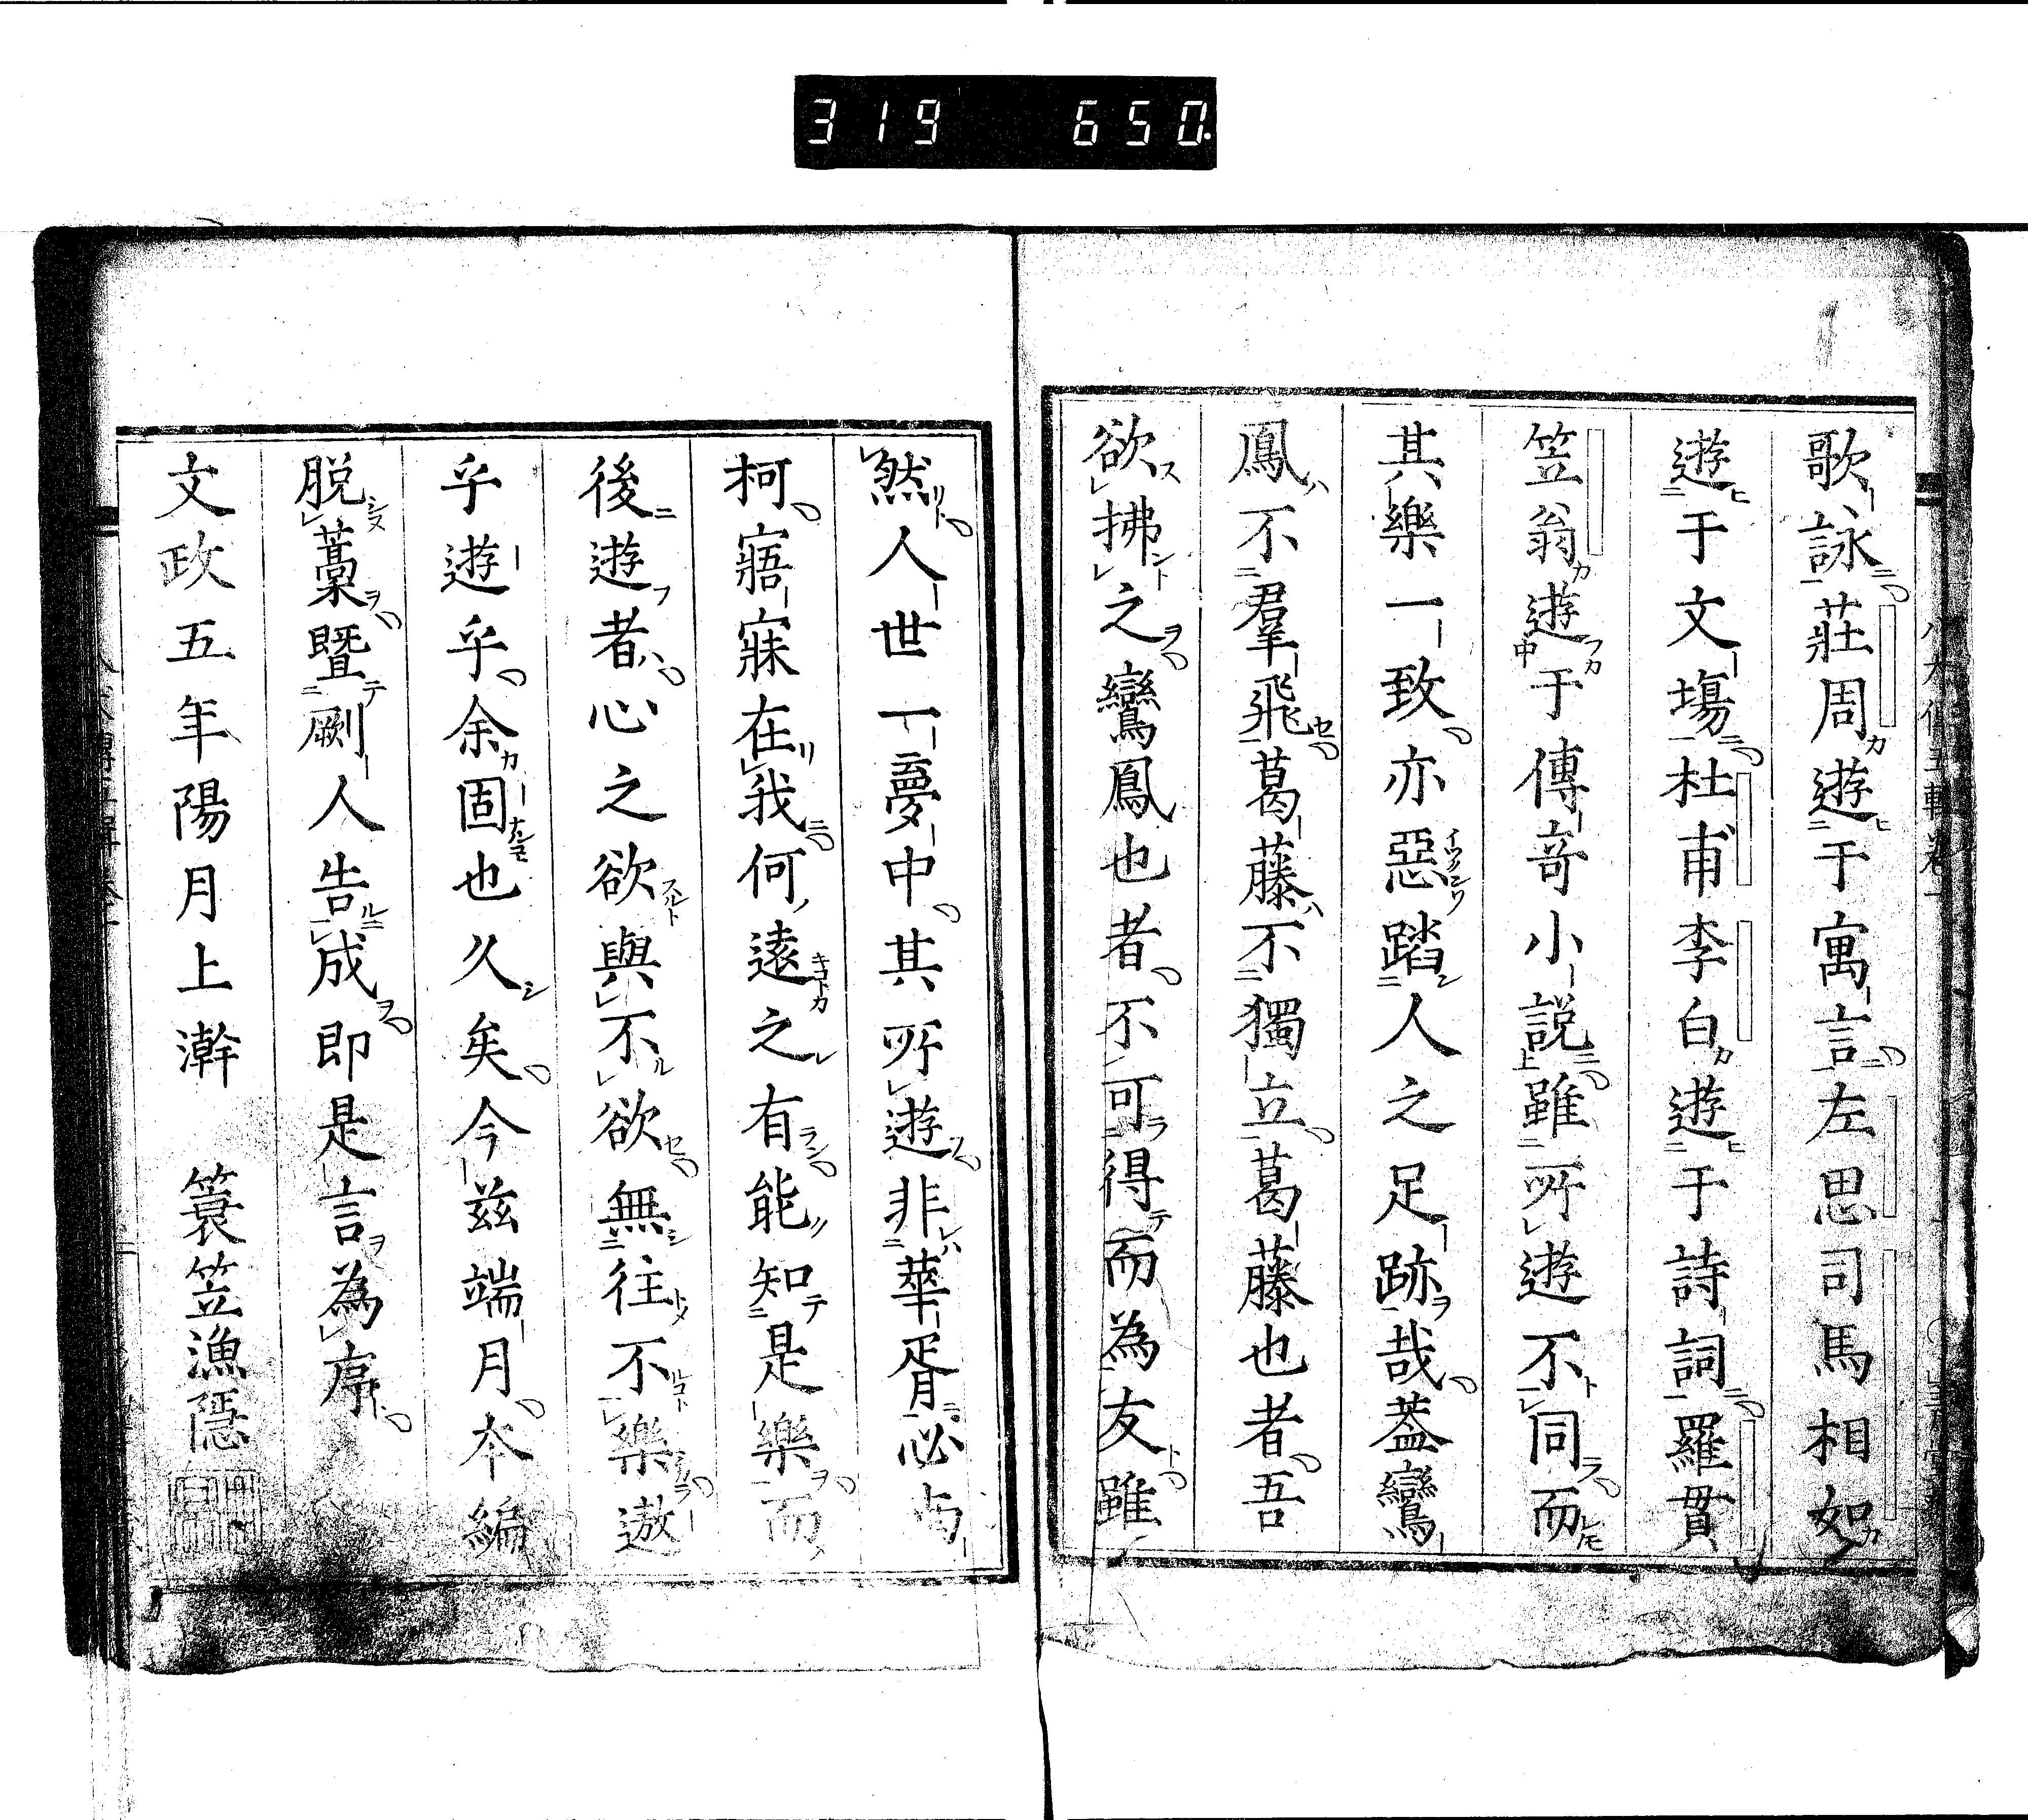 319 650.
歌詠莊周遊于寓言左思司馬相如
遊于文塲杜甫李白遊于詩詞羅貫
笠翁遊于傳竒小説雖所遊不同而
其樂一致亦惡踏人之足跡哉葢鸞
鳳不羣飛葛藤不獨立葛藤也者吾
欲拂之鸞鳳也者不可得而為友雖
然人世一夢中其所遊非華胥必
柯寤寐在我何遠之有能知是樂而
後遊者心之欲與不欲無往不樂遨
乎遊乎余固也久矣今茲端月本編
脱藁曁劂人告成即是言為序
文政五年陽月上澣 簑笠漁隱